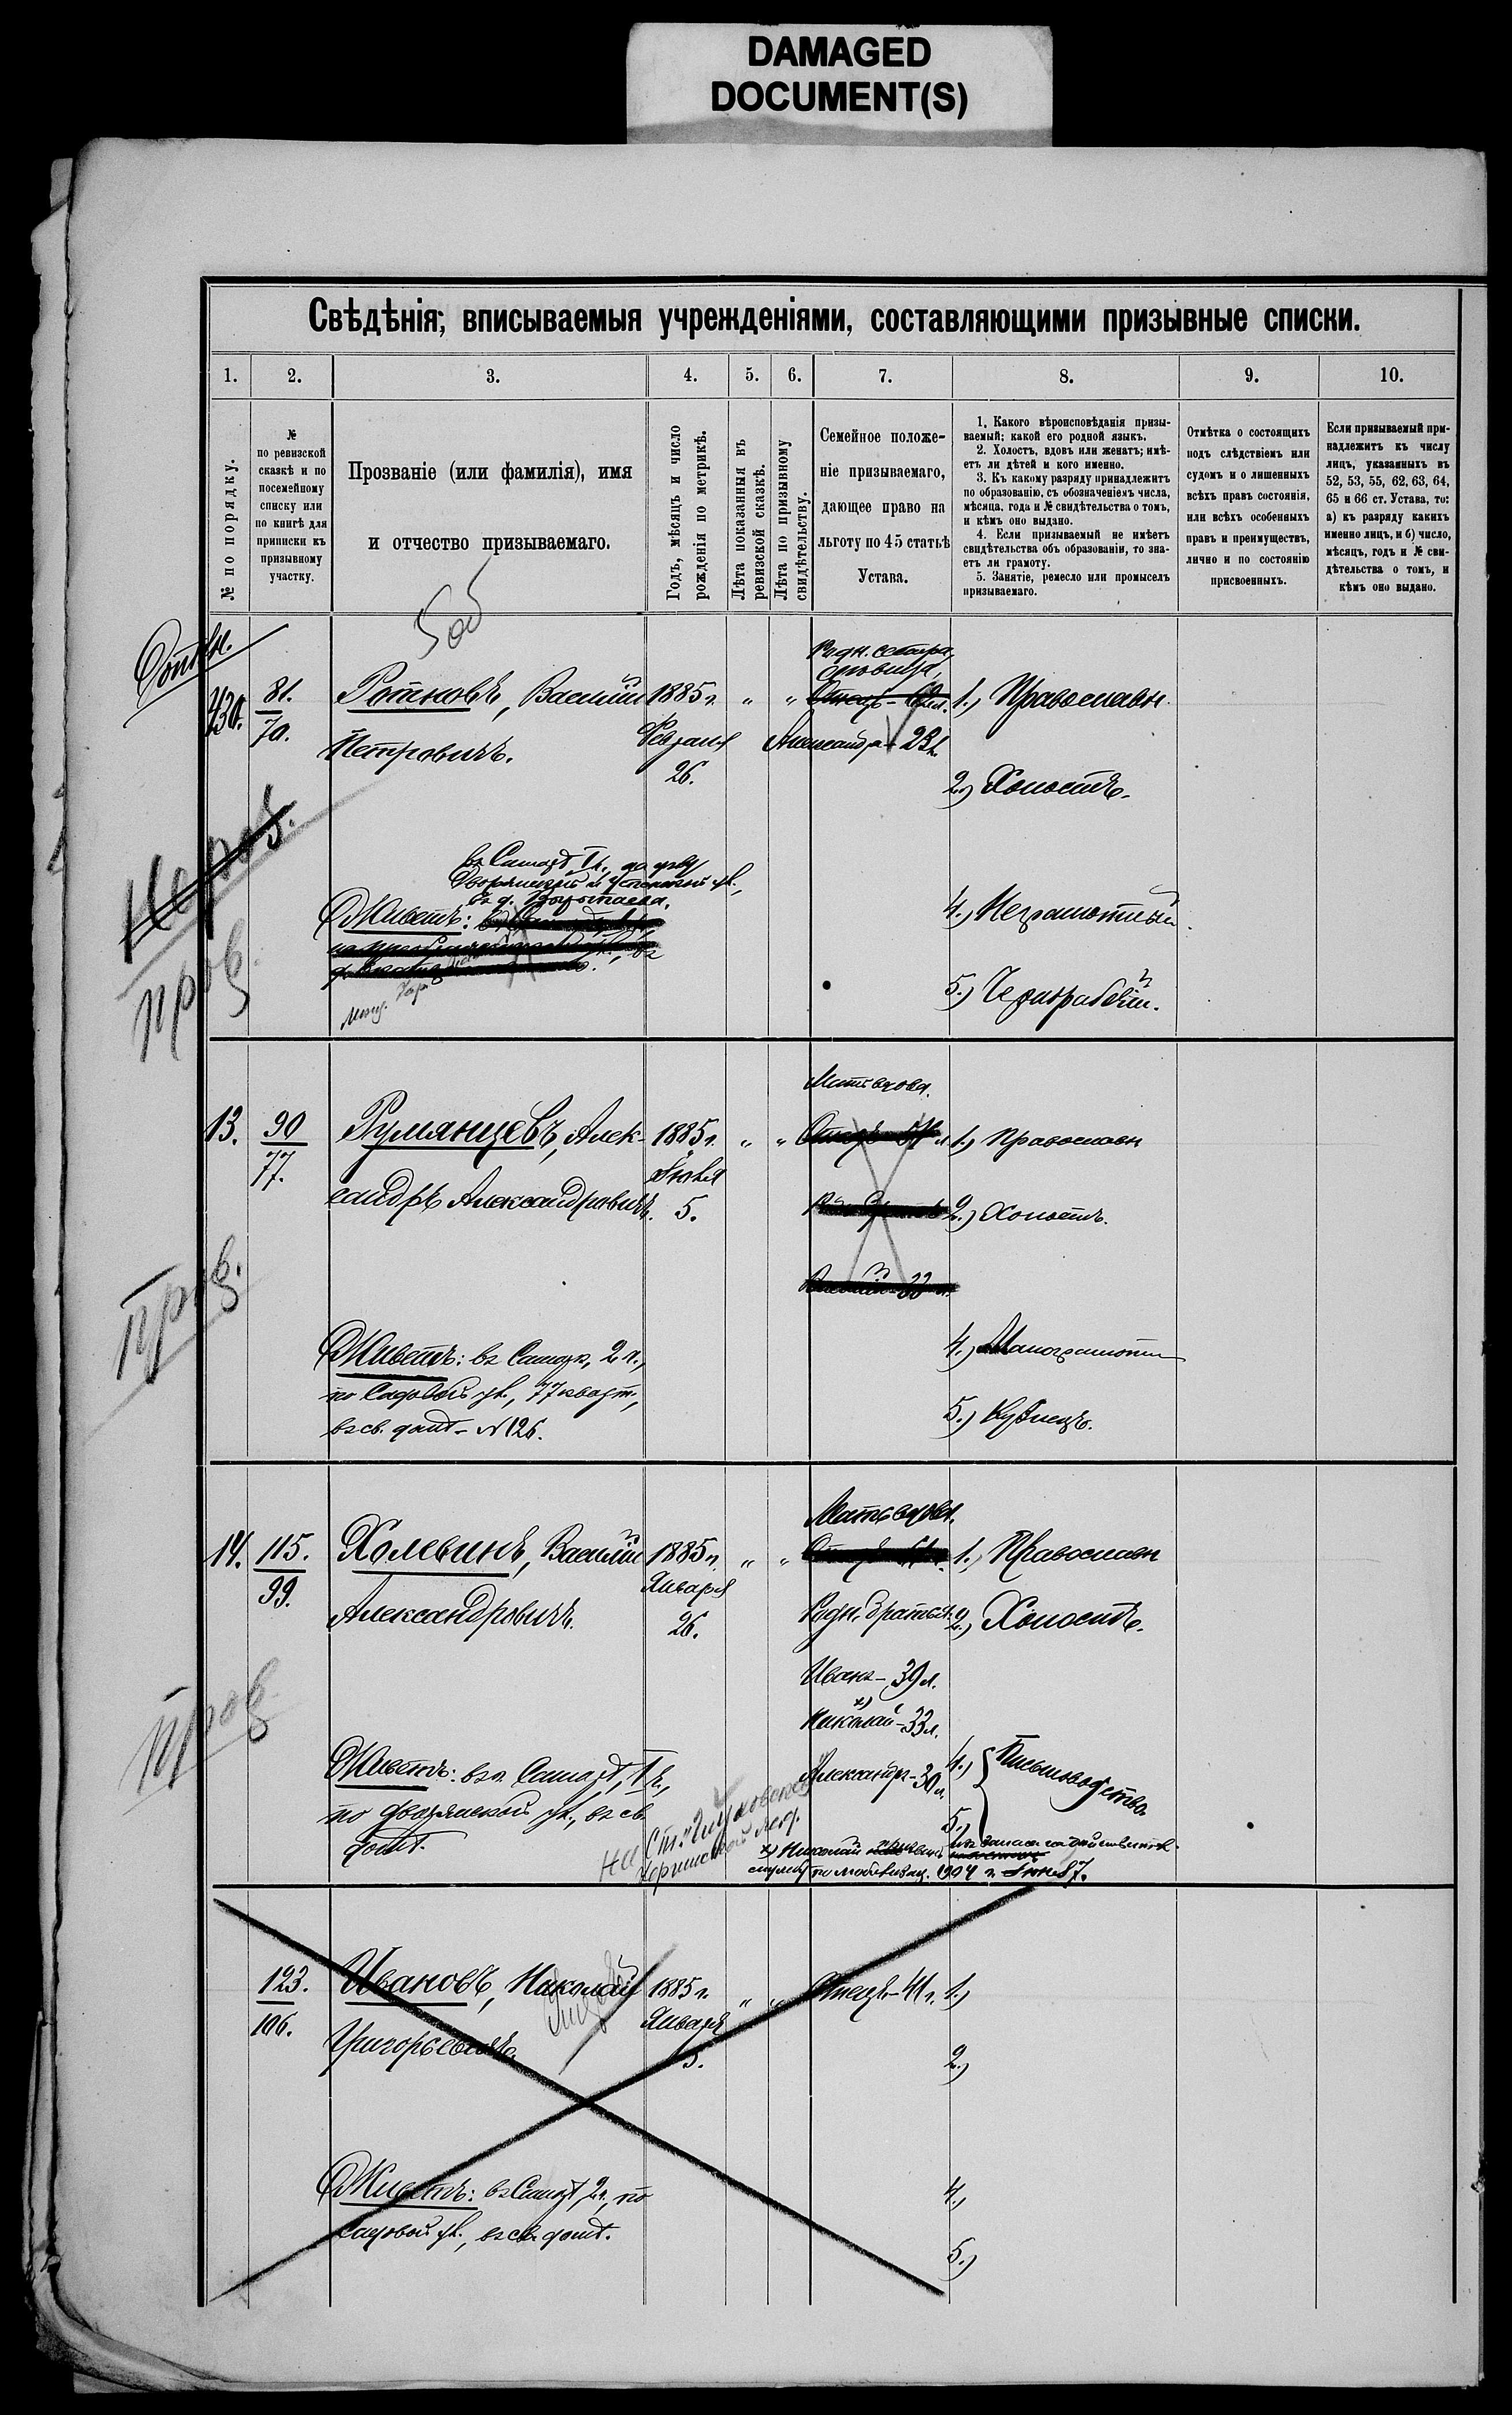 DAMAGED
DOCUMENT(S)
Свѣдѣнія, вписываемыя учрежденіями, составляющими призывные списки.
1. 2. 3. 4. 5. 6. 7. 8. 9. 10.
№ по порядку.
№
по ревизской
сказкѣ и по
посемейному
списку или
по книгѣ для
приписки къ
призывному
участку.
Прозваніе (или фамилія), имя
и отчество призываемаго.
Годъ, мѣсяцъ и число
рожденія по метрикѣ.
Лѣта показанныя въ
ревизской сказкѣ.
Лѣта по призывному
свидѣтельству.
Семейное положе-
ніе призываемаго,
дающее право на
льготу по 45 статьѣ
Устава.
1. Какого вѣроисповѣданія призы-
ваемый; какой его родной языкъ.
2. Холостъ, вдовъ или женатъ; имѣ-
етъ ли дѣтей и кого именно.
3. Къ какому разряду принадлежитъ
по образованію, съ обозначеніемъ числа,
мѣсяца, года и № свидѣтельства о томъ,
и кѣмъ оно выдано.
4. Если призываемый не имѣетъ
свидѣтельства объ образованіи, то зна-
етъ ли грамоту.
5. Занятіе, ремесло или промыселъ
призываемаго.
Отмѣтка о состоящихъ
подъ слѣдствіемъ или
судомъ и о лишенныхъ
всѣхъ правъ состоянія,
или всѣхъ особенныхъ
правъ и преимуществъ,
лично и по состоянію
присвоенныхъ.
Если призываемый при-
надлежитъ къ числу
лицъ, указанныхъ въ
52, 53, 55, 62, 63, 64,
65 и 66 ст. Устава, то:
а) къ разряду какихъ
именно лицъ, и б) число,
мѣсяцъ, годъ и № сви-
дѣтельства о томъ, и
кѣмъ оно выдано.
Родн. сестра
дѣвица,
430. 81. Ротновъ, Василій 1885 г. " " Отецъ - 1.) Православн.
70. Петровичъ. Февраля Александра 23 л.
26.
2.) Холостъ.
Неров.
въ Самарѣ, 1 ч., на углу
Дворянской и ул.,
въ д.
Живетъ:
4.) Неграмотный.
пров.
5.) Чернорабочій.
Мать вдова.
13. 90 Румянцевъ, Алек- 1885 г. " " Отецъ 1.) Православн
77. сандръ Александровичъ. Іюля
5.
2.) Холостъ.
33 л.
пров.
Живетъ: въ Самарѣ, 2 ч.,
по Садовой ул., 77 кварт.,
въ св. домѣ - № 126.
4.) Малограмотн
5.) Кузнецъ.
Мать вдова.
14. 115. Холевинъ, Василій 1885 г. " " 1.) Православн
99. Александровичъ. Января
26.
Родн. братья: 2.) Холостъ.
Иванъ - 39 л.
Николай x) - 33 л.
Александръ - 30 л.
пров
Живетъ: въ г. Самарѣ, 1 ч.,
по Дворянской ул., въ св.
домѣ.
4.) Письмоводство.
5.)
x) Николай изъ запаса на дѣйствительн.
службу по мобилизац. 1904 г. Іюня 7.
123. Ивановъ, Николай 1885 г. " " Отецъ - 41 г. 1.)
106. Григорьевичъ. Января
5.
2.)
Живетъ: въ Самарѣ 2 ч., по
Садовой ул., въ св. домѣ.
4.)
5.)